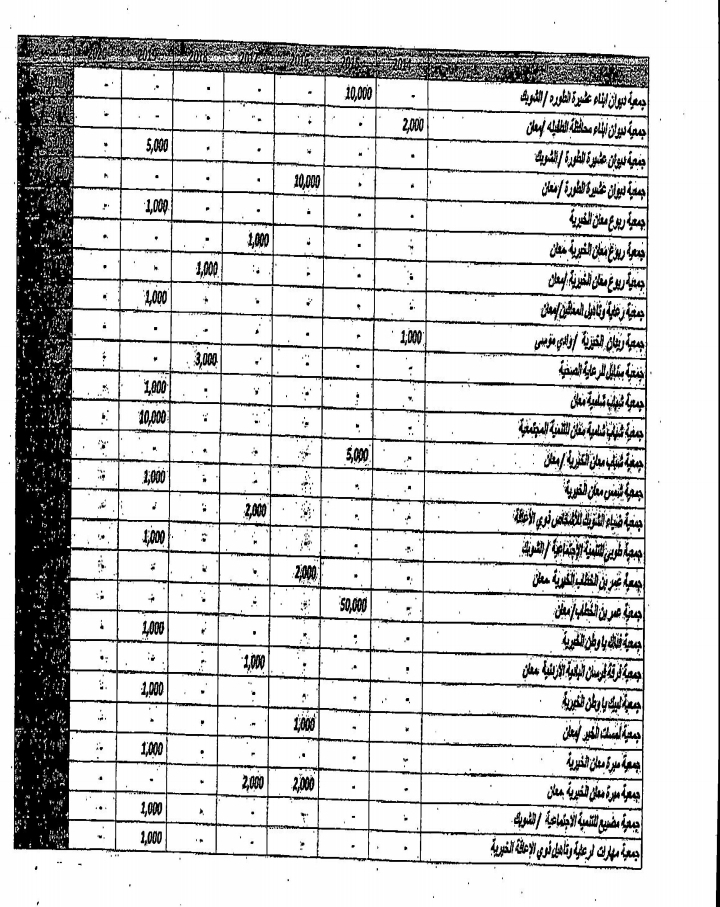 2014 2015 2016 2017 2018 2019
جمعية ديوان ابناء عشيرة الطوره /الشوبك - 10,000 - - - - -
جمعية ديوان ابناء محافظة الطفيله /معان 2,000 - - - - - -
جمعية ديوان عشيرة الطورة /الشوبك - - - - - 5,000 -
جمعية ديوان عشيرة الطورة /معان - - 10,000 - - - -
جمعية ربوع معان الخيرية - - - - - 1,000 -
جمعية ربوع معان الخيرية -معان - - - 1,000 - - -
جمعية ربوع معان الخيرية /معان - - - - 1,000 - -
جمعية رعاية وتأهيل المعاقين/معان - - - - - 1,000 -
جمعية الخيرية /وادي موسى 1,000 - - - - - -
جمعية سنابل للرعاية الصحية - - - - 3,000 - -
جمعية شباب شامية معان - - - - - 1,000 -
جمعية شباب شامية معان للتنمية المجتمعية - - - - - 10,000 -
جمعية شباب معان الخيرية /معان - 5,000 - - - - -
جمعية شمس معان الخيرية - - - - - 1,000 -
جمعية ضياء الشوبك للأشخاص ذوي الأعاقة - - - 2,000 - - -
جمعية طوبى للتنمية الإجتماعية /الشوبك - - - - - 1,000 -
جمعية عمر بن الخطاب الخيرية -معان - - 2,000 - - - -
جمعية عمر بن الخطاب/معان - 50,000 - - - - -
جمعية يا وطن الخيرية - - - - - 1,000 -
جمعية فرقة فرسان البادية الاردنية -معان - - - 1,000 - - -
جمعية لبيك يا وطن الخيرية - - - - - 1,000 -
جمعية لمسات الخير /معان - - 1,000 - - - -
جمعية مبرة معان الخيرية - - - - - 1,000 -
جمعية مبرة معان الخيرية -معان - - 2,000 2,000 - - -
جمعية للتنمية الاجتماعية /الشوبك - - - - - 1,000 -
جمعية مهارات لرعاية وتأهيل ذوي الإعاقة الخيرية - - - - - 1,000 -